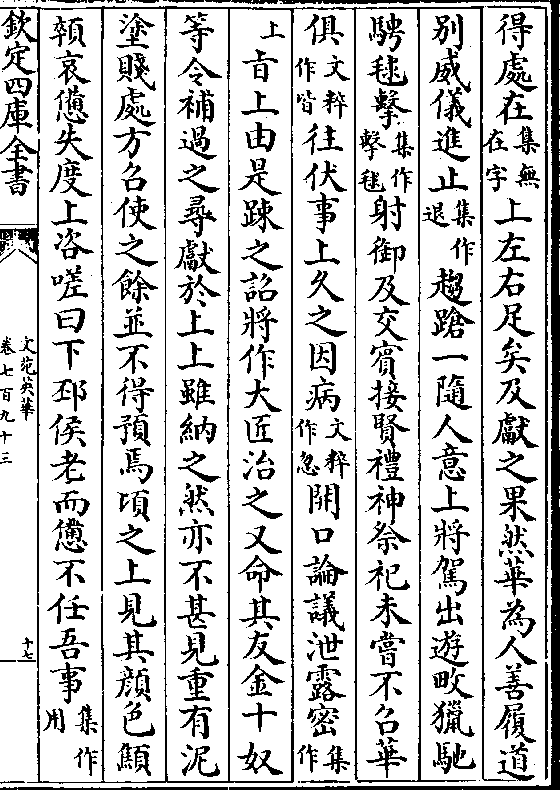 得處在集無在字上左右足矣及獻之果然華為人善履道
別威儀進止集作退趨蹌一隨人意上將駕出遊畋獵馳
騁毬擊集作擊毬射御及交賓接賢禮神祭祀未嘗不名華
俱文粹作皆往伏事上久之因病文粹作忽開口論議泄露密集作
上旨上由是踈之詔將作大匠治之又命其友金十奴
等令補過之尋獻於上上雖納之然亦不甚見重有泥
塗賤處方名使之餘並不得預焉頃之上見其顔色顦
顇哀憊失度上咨嗟曰下邳侯老而憊不任吾事集作用
欽定四庫全書
文苑英華
卷七百九十三
十七